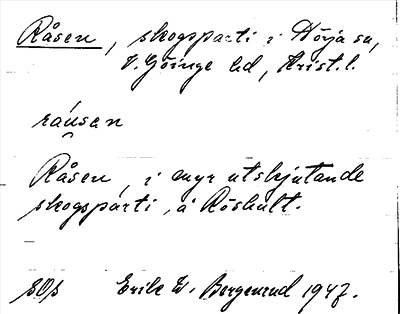 Råsen, skogsparti i Hörja sn,
V. Göinge hd, Krist. l.
ráusan
Råsen, i myr utskjutande
skogsparti, å Röshult.
Erik W. Bergenrud 1947.